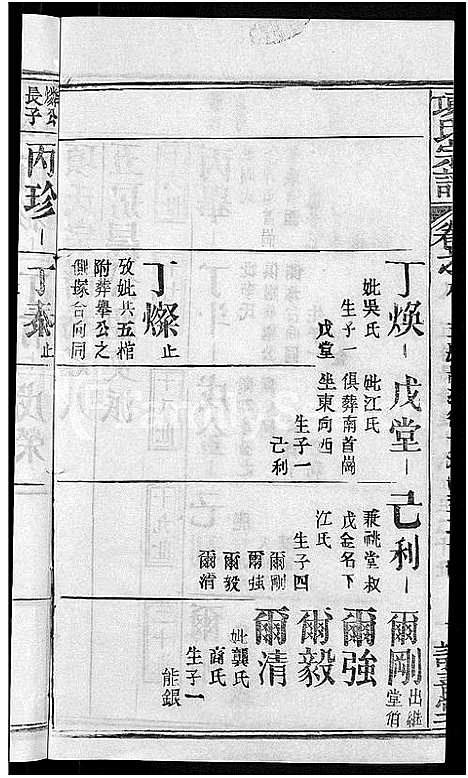 項氏宗譜
卷之
丁煥
妣吳氏
生子一
戊堂
戊堂
妣江氏
俱葬南首崗
坐東向西
生子一
己利
己利
兼祧堂叔
戊金名下
江氏
生子四
爾剛
爾強
爾毅
爾清
爾剛
出繼
堂伯
爾強
爾毅
爾清
妣龔氏
商氏
生子一
能銀
丁燦
止
攷妣共五棺
附葬舉公之
側塚台向同
長子
丙珍
丁泰
止